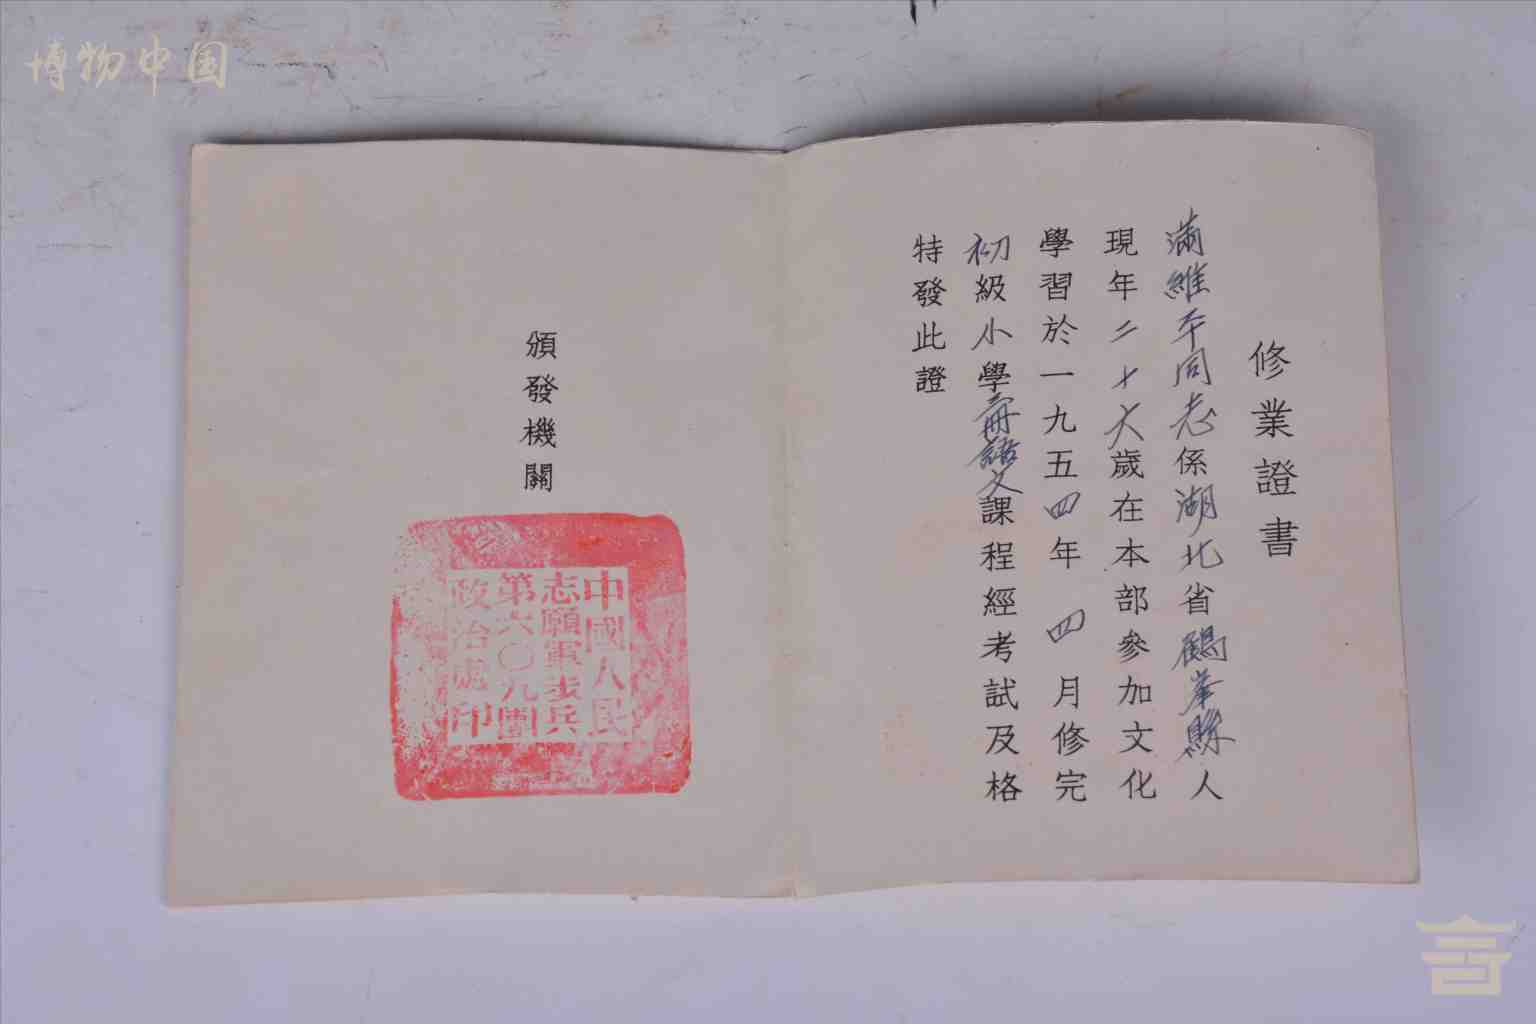 博物中国
修業證書
滿維平同志係湖北省鶴峯縣人
現年二十六歲在本部參加文化
學習於一九五四年四月修完
初級小學二冊語文課程經考試及格
特發此證
頒發機關
中國人民
志願軍步兵
第六〇九團
政治處印